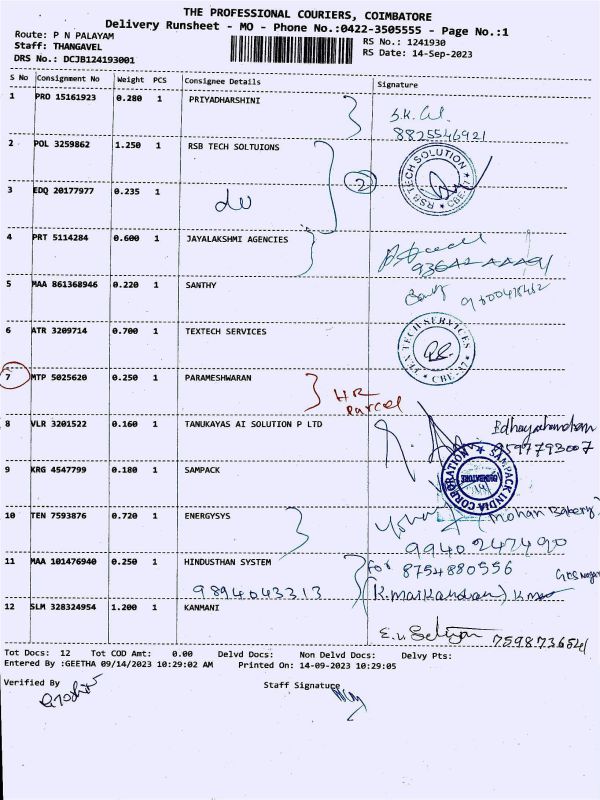 THE PROFESSIONAL COURIERS, COIMBATORE
Delivery Runsheet - MO - Phone No.:0422-3505555 - Page No.:1
Route: P N PALAYAM
Staff: THANGAVEL
DRS No.: DCJB124193001
RS No.: 1241930
RS Date: 14-Sep-2023
S No Consignment No Weight PCS Consignee Details Signature
1 PRO 15161923 0.280 1 PRIYADHARSHINI
8825546921
2 POL 3259862 1.250 1 RSB TECH SOLTUIONS
2
RSB TECH SOLUTION
CBE
3 EDQ 20177977 0.235 1 do
4 PRT 5114284 0.600 1 JAYALAKSHMI AGENCIES
5 MAA 861368946 0.220 1 SANTHY
6 ATR 3209714 0.700 1 TEXTECH SERVICES
TEXTECH SERVICES
CBE
7 MTP 5025620 0.250 1 PARAMESHWARAN
HR
Parcel
8 VLR 3201522 0.160 1 TANUKAYAS AI SOLUTION P LTD
9 KRG 4547799 0.180 1 SAMPACK
SANPACK INDIA CORPORATION
10 TEN 7593876 0.720 1 ENERGYSYS
(Mohan Bakery)
9940247490
11 MAA 101476940 0.250 1 HINDUSTHAN SYSTEM
for 8754880556
9894043313
12 SLM 328324954 1.200 1 KANMANI
7598736541
Tot Docs: 12 Tot COD Amt: 0.00 Delvd Docs: Non Delvd Docs: Delvy Pts:
Entered By :GEETHA 09/14/2023 10:29:02 AM Printed On: 14-09-2023 10:29:05
Verified By
Staff Signature